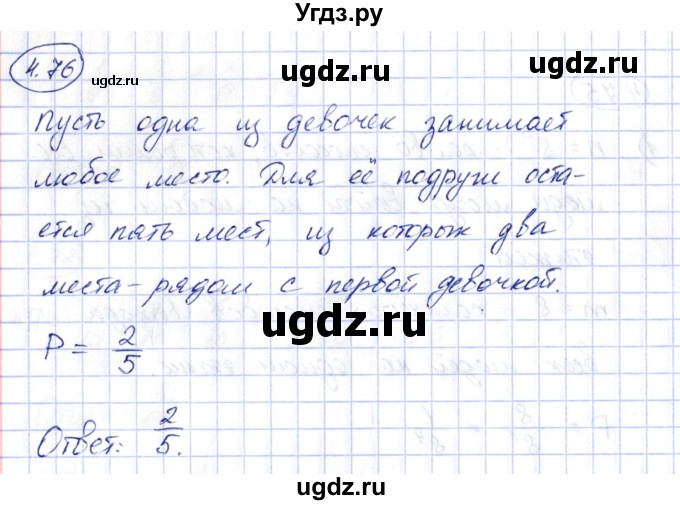 Угдз.ру
4.76
ugdz.ru ugdz.ru
Пусть одна из девочек занимает
любое место. Для её подруж оста-
ugdz.ru
ется пять мест, из которых два
места - рядом с первой девочкой.
ugdz.ru ugdz.ru
P = 2/5
ugdz.ru
Ответ: 2/5.
ugdz.ru
ugdz.ru